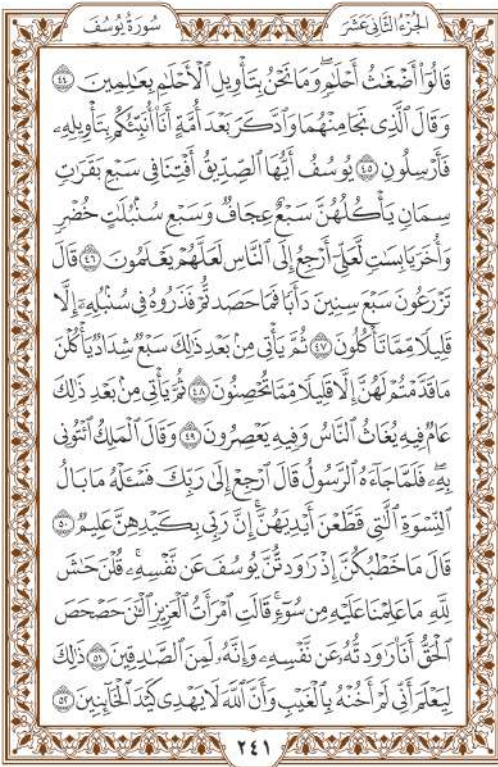 الجُزءُ الثَّانِي عَشَرَ
سُورَةُ يُوسُفَ
قَالُوٓا۟ أَضْغَٰثُ أَحْلَٰمٍ ۖ وَمَا نَحْنُ بِتَأْوِيلِ ٱلْأَحْلَٰمِ بِعَٰلِمِينَ ٤٤
وَقَالَ ٱلَّذِى نَجَا مِنْهُمَا وَٱدَّكَرَ بَعْدَ أُمَّةٍ أَنَا۠ أُنَبِّئُكُم بِتَأْوِيلِهِۦ
فَأَرْسِلُونِ ٤٥ يُوسُفُ أَيُّهَا ٱلصِّدِّيقُ أَفْتِنَا فِى سَبْعِ بَقَرَٰتٍ
سِمَانٍ يَأْكُلُهُنَّ سَبْعٌ عِجَافٌ وَسَبْعِ سُنۢبُلَٰتٍ خُضْرٍ
وَأُخَرَ يَابِسَٰتٍ لَّعَلِّىٓ أَرْجِعُ إِلَى ٱلنَّاسِ لَعَلَّهُمْ يَعْلَمُونَ ٤٦ قَالَ
تَزْرَعُونَ سَبْعَ سِنِينَ دَأَبًا فَمَا حَصَدتُّمْ فَذَرُوهُ فِى سُنۢبُلِهِۦٓ إِلَّا
قَلِيلًا مِّمَّا تَأْكُلُونَ ٤٧ ثُمَّ يَأْتِى مِنۢ بَعْدِ ذَٰلِكَ سَبْعٌ شِدَادٌ يَأْكُلْنَ
مَا قَدَّمْتُمْ لَهُنَّ إِلَّا قَلِيلًا مِّمَّا تُحْصِنُونَ ٤٨ ثُمَّ يَأْتِى مِنۢ بَعْدِ ذَٰلِكَ
عَامٌ فِيهِ يُغَاثُ ٱلنَّاسُ وَفِيهِ يَعْصِرُونَ ٤٩ وَقَالَ ٱلْمَلِكُ ٱئْتُونِى
بِهِۦ ۖ فَلَمَّا جَآءَهُ ٱلرَّسُولُ قَالَ ٱرْجِعْ إِلَىٰ رَبِّكَ فَسْـَٔلْهُ مَا بَالُ
ٱلنِّسْوَةِ ٱلَّٰتِى قَطَّعْنَ أَيْدِيَهُنَّ ۚ إِنَّ رَبِّى بِكَيْدِهِنَّ عَلِيمٌ ٥٠
قَالَ مَا خَطْبُكُنَّ إِذْ رَٰوَدتُّنَّ يُوسُفَ عَن نَّفْسِهِۦ ۚ قُلْنَ حَٰشَ
لِلَّهِ مَا عَلِمْنَا عَلَيْهِ مِن سُوٓءٍ ۚ قَالَتِ ٱمْرَأَتُ ٱلْعَزِيزِ ٱلْـَٰٔنَ حَصْحَصَ
ٱلْحَقُّ أَنَا۠ رَٰوَدتُّهُۥ عَن نَّفْسِهِۦ وَإِنَّهُۥ لَمِنَ ٱلصَّٰدِقِينَ ٥١ ذَٰلِكَ
لِيَعْلَمَ أَنِّى لَمْ أَخُنْهُ بِٱلْغَيْبِ وَأَنَّ ٱللَّهَ لَا يَهْدِى كَيْدَ ٱلْخَآئِنِينَ ٥٢
٢٤١